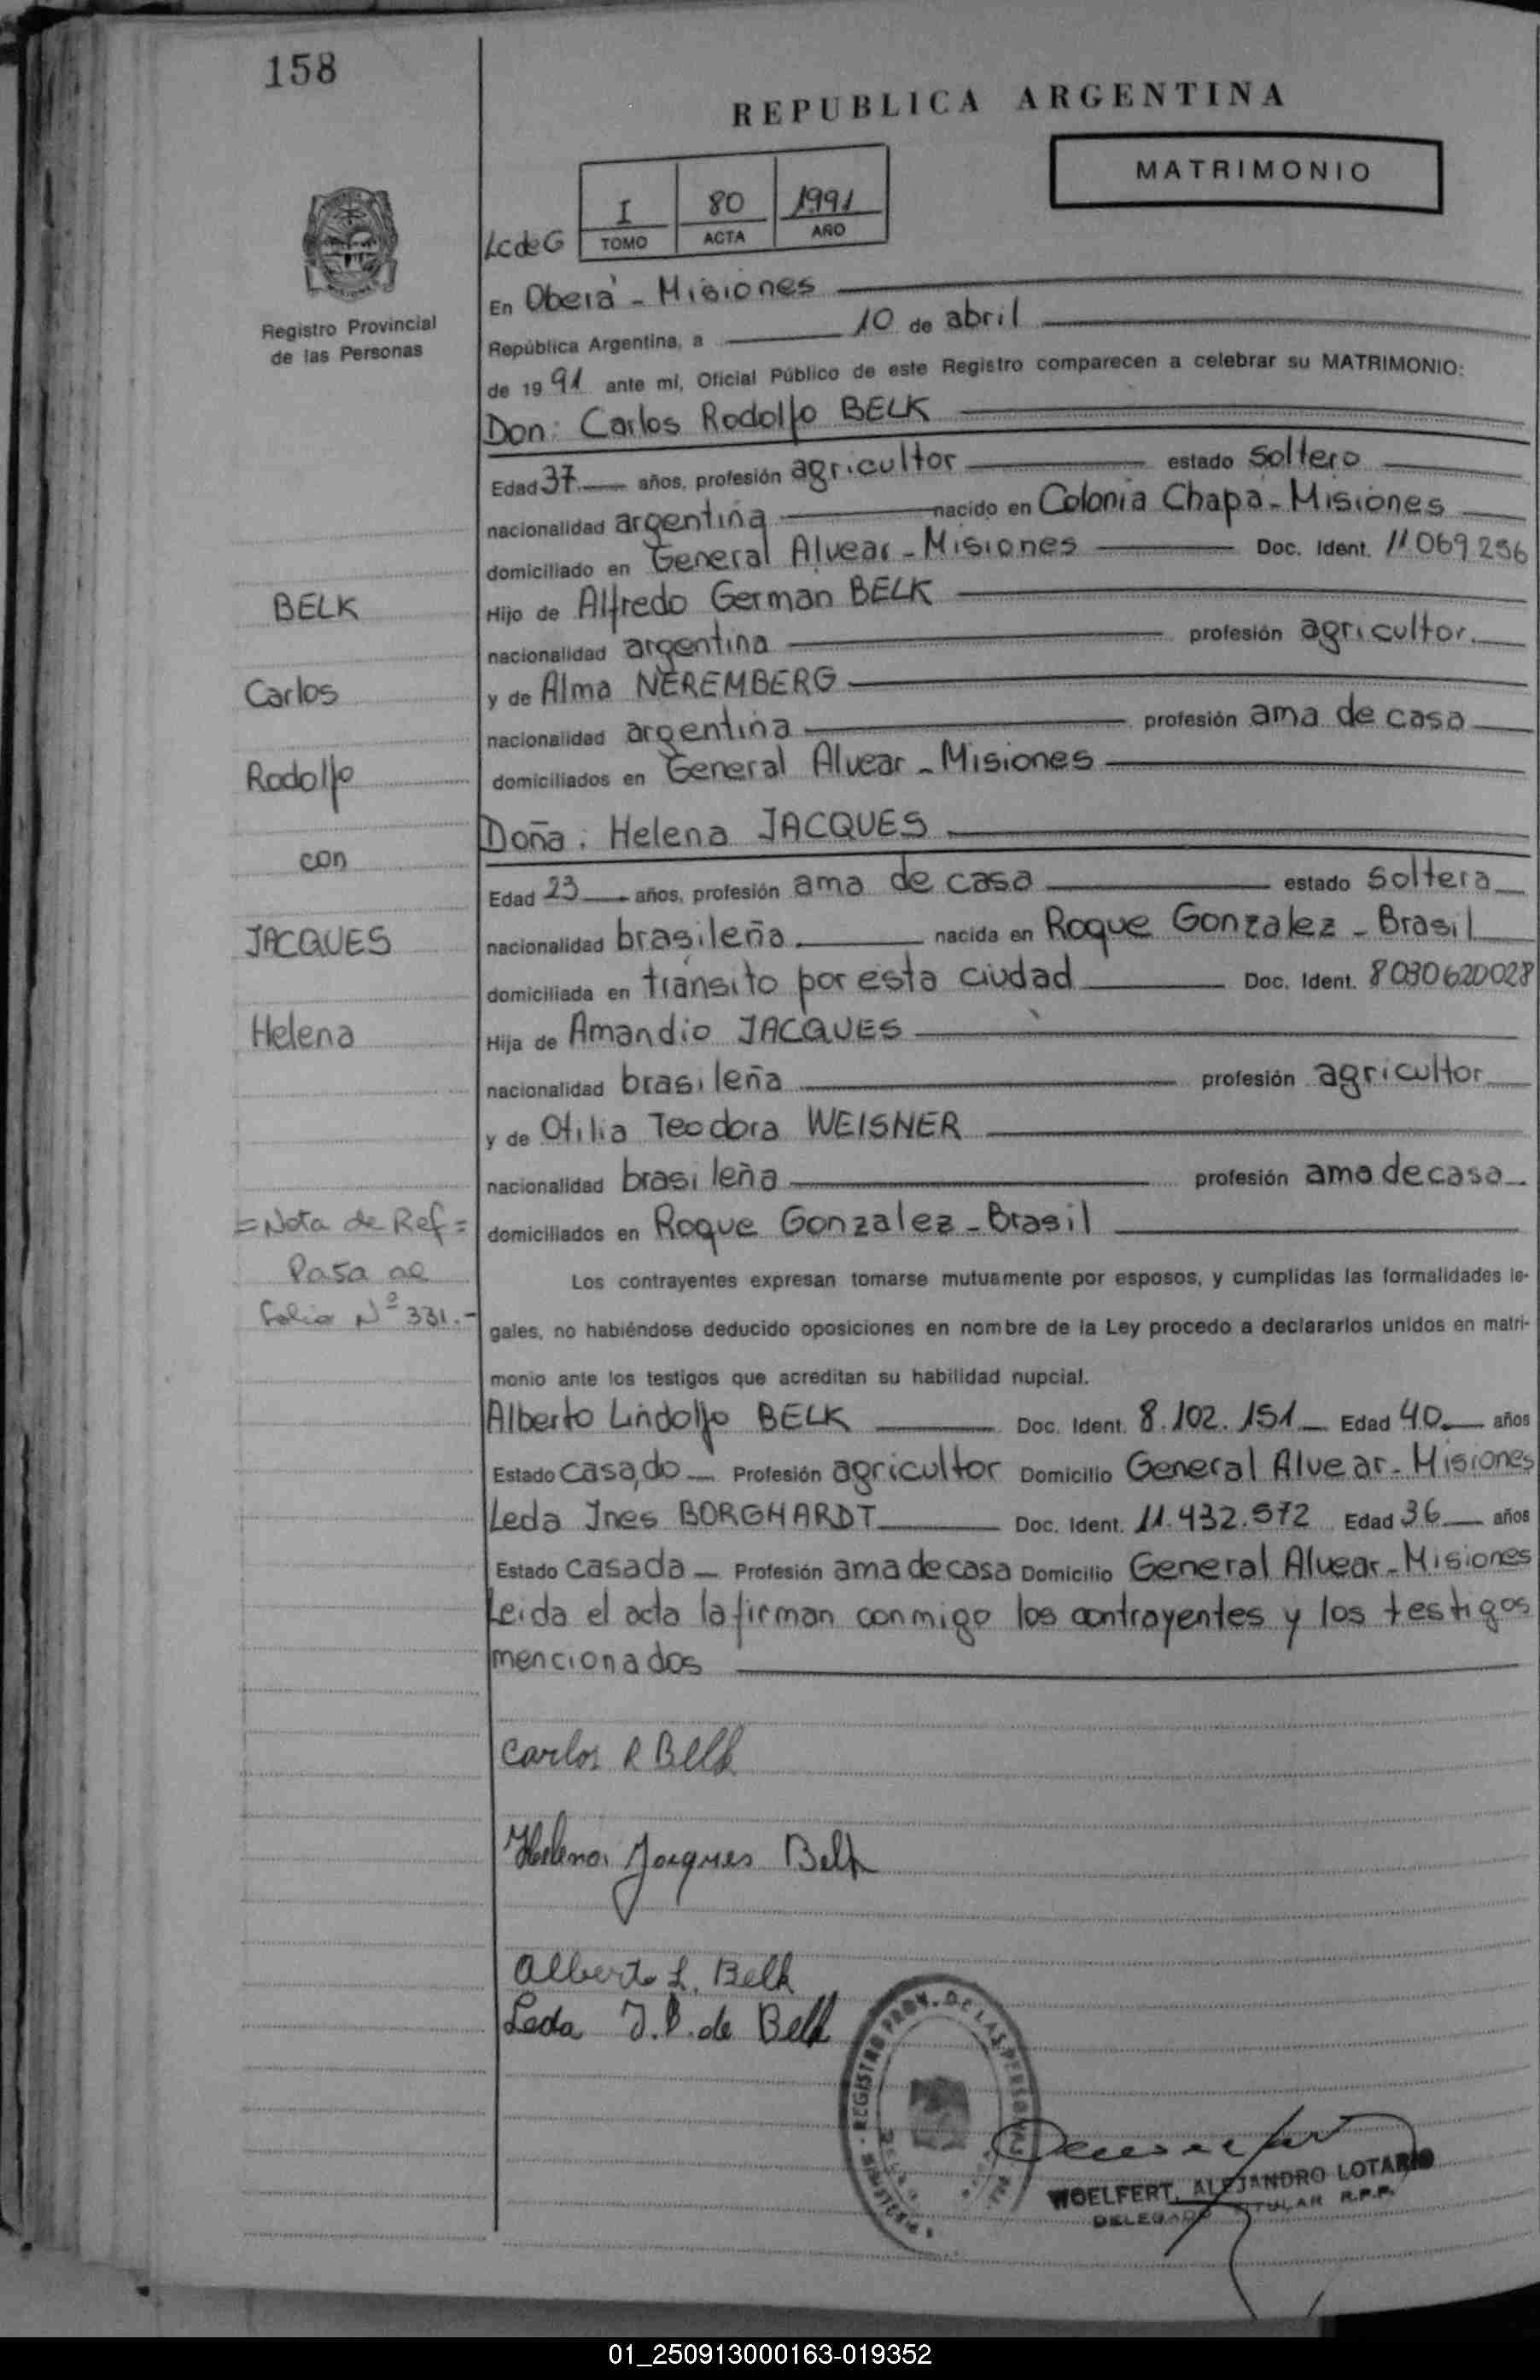 158
REPUBLICA ARGENTINA
MATRIMONIO
I 80 1991
LcdeG TOMO ACTA AÑO
Registro Provincial
de las Personas
En Oberá - Misiones
República Argentina, a 10 de abril
de 1991 ante mí, Oficial Público de este Registro comparecen a celebrar su MATRIMONIO:
Don: Carlos Rodolfo BELK
Edad 37 años, profesión agricultor estado soltero
nacionalidad argentina nacido en Colonia Chapá - Misiones
domiciliado en General Alvear - Misiones Doc. Ident. 11069256
BELK
Hijo de Alfredo German BELK
nacionalidad argentina profesión agricultor.
Carlos
y de Alma NEREMBERG
nacionalidad argentina profesión ama de casa
Rodolfo
domiciliados en General Alvear - Misiones
Doña: Helena JACQUES
con
Edad 23 años, profesión ama de casa estado soltera
JACQUES
nacionalidad brasileña nacida en Roque Gonzalez - Brasil
domiciliada en tránsito por esta ciudad Doc. Ident. 8030620028
Helena
Hija de Amandio JACQUES
nacionalidad brasileña profesión agricultor
y de Otilia Teodora WEISNER
nacionalidad brasileña profesión ama de casa
=Nota de Ref=
domiciliados en Roque Gonzalez - Brasil
Pasa al
folio Nº 331.-
Los contrayentes expresan tomarse mutuamente por esposos, y cumplidas las formalidades le-
gales, no habiéndose deducido oposiciones en nombre de la Ley procedo a declararlos unidos en matri-
monio ante los testigos que acreditan su habilidad nupcial.
Alberto Lindolfo BELK Doc. Ident. 8.102.151 Edad 40 años
Estado casado Profesión agricultor Domicilio General Alvear - Misiones
Leda Ines BORGHARDT Doc. Ident. 11.432.572 Edad 36 años
Estado casada Profesión ama de casa Domicilio General Alvear - Misiones
Leida el acta la firman conmigo los contrayentes y los testigos
mencionados
Carlos R Belk
Helena Jacques Belk
Alberto L. Belk
Leda I. B. de Belk
REGISTRO PROV. DE LAS PERSONAS
WOELFERT, ALEJANDRO LOTARIO
DELEGADO TITULAR R.P.P.
01_250913000163-019352